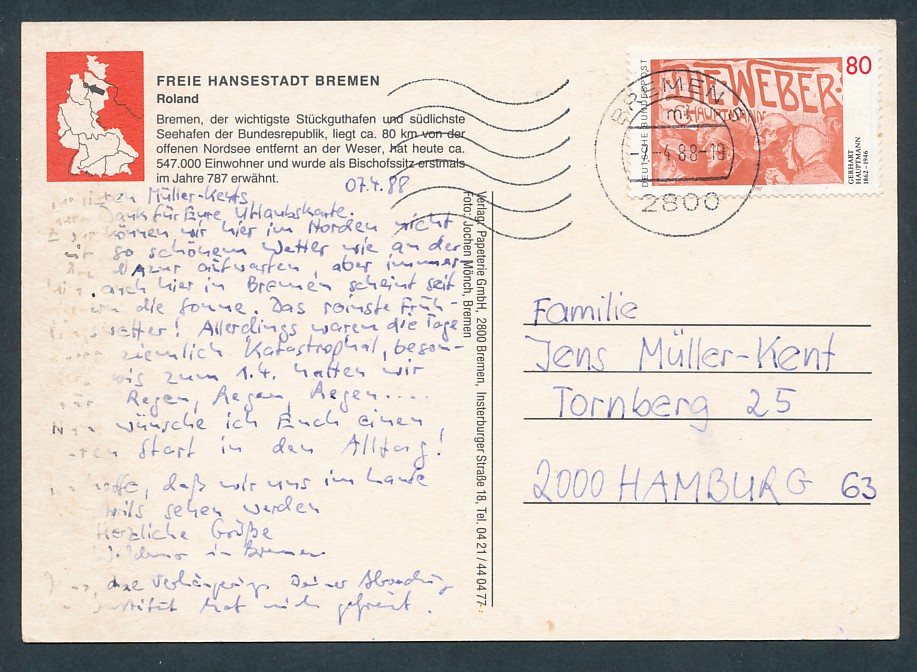 FREIE HANSESTADT BREMEN
Roland
Bremen, der wichtigste Stückguthafen und südlichste
Seehafen der Bundesrepublik, liegt ca. 80 km von der
offenen Nordsee entfernt an der Weser, hat heute ca.
547.000 Einwohner und wurde als Bischofssitz erstmals
im Jahre 787 erwähnt.
07.4.88
Müller-Kents
Dank für Eure Urlaubskarte.
können wir hier im Norden nicht
so schönem Wetter wie an der
Azur aufwarten, aber immer-
auch hier in Bremen scheint seit
die Sonne. Das reinste Früh-
wetter! Allerdings waren die Tage
ziemlich katastrophal, beson-
bis zum 1.4. hatten wir
Regen, Regen, Regen....
wünsche ich Euch einen
Start in den Alltag!
hoffe, daß wir uns im Laufe
sehen werden
Herzliche Grüße
in Bremen
Deiner
hat mich gefreut.
Verlag: Papeterie GmbH, 2800 Bremen, Insterburger Straße 18, Tel. 04 21 / 44 04 77
Foto: Jochen Mönch, Bremen
BREMEN 5
mi
4.88-19
2800
DEUTSCHE BUNDESPOST
DIE WEBER
HAUPTMANN
80
GERHART
HAUPTMANN
1862-1946
Familie
Jens Müller-Kent
Tornberg 25
2000 HAMBURG 63